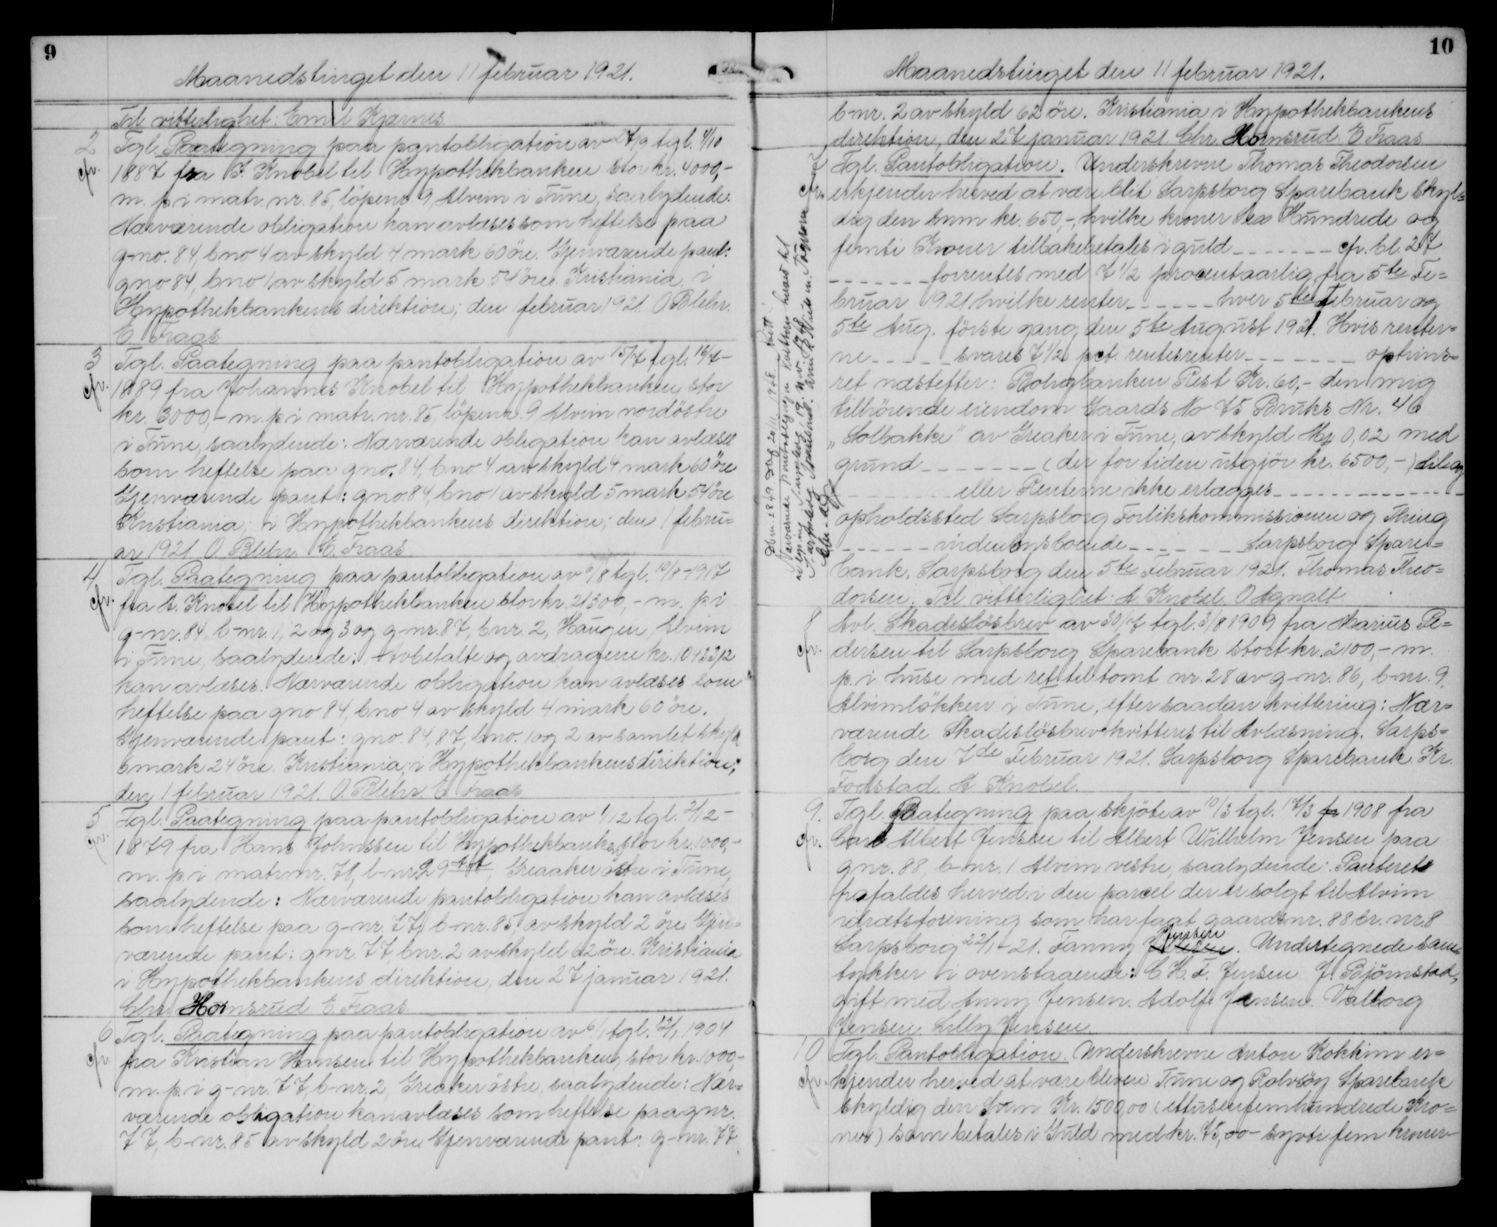 9
Maanedstinget den 11 februar 1921.
Til vitterlighet: Emil Kjærnes
2 Tgl. Paategning paa pantobligation av 17/9 tgl. 4/10
cfr. 1887 fra B. Knobel til Hypothekbanken stor kr. 4000,-
m. p. i matr. nr. 85, löpenr. 9 Alvim i Tune, saalydende:
Nærværende obligation kan avlæses som heftelse paa
g-no. 84, b.no 4 av skyld 4 mark 60 öre. Gjenværende pant:
gno 84, b.no 1 av skyld 5 mark 54 öre. Kristiania, i
Hypothekbankens direktion; den februar 1921 O Blehr.
E Fraas
3 Tgl. Paategning paa pantobligation av 15/7 tgl. 16/7-
cfr. 1889 fra Johannes Knobel til Hypothekbanken, stor
kr. 3000,- m. p. i matr. nr. 85, löpenr. 9 Alvim nordöstre
i Tune, saalydende: Nærværende obligation kan avlæses
som heftelse paa gno. 84, b.no 4 av skyld 4 mark 60 öre
Gjenværende pant: gno 84, b.no 1 av skyld 5 mark 54 öre
Kristiania; i Hypothekbankens direktion; den 1 febru-
ar 1921 O. Blehr. E. Fraas
4 Tgl. Paategning paa pantobligation av 9/8 tgl. 10/8-1917
cfr. fra A. Knobel til Hypothekbanken stor kr. 21300,- m. p. i
g-nr. 84, b-nr. 1, 2 og 3 og g-nr. 87, b.nr. 2, Haugen, Alvim
i Tune, saalydende: Avbetalte og avdragene kr. 10423,12
kan avlæses. Nærværende obligation kan avlæses som
heftelse paa gno 84, b.no 4 av skyld 4 mark 60 öre.
Gjenværende pant: gno. 84, 87, b.no. 1 og 2 av samlet skyld
6 mark 24 öre. Kristiania, i Hypothekbankens direktion;
den 1 februar 1921. O. Blehr E Fraas
5 Tgl. Paategning paa pantobligation av 1/12 tgl. 2/12-
cfr. 1879 fra Hans Johnssen til Hypothekbanken, stor kr. 1000,-
m. p. i matr. nr. 78, b-nr. 29 Greaaker östre i Tune,
saalydende: Nærværende pantobligation kan avlæses
som heftelse paa g-nr. 77, b-nr. 85, av skyld 2 öre. Gjen-
værende pant: gnr. 77, b.nr. 2 av skyld 62 öre. Kristiania
i Hypothekbankens direktion, den 27 januar 1921.
Chr. Homsrud E. Fraas
6 Tgl. Paategning paa pantobligation av 6/1 tgl. 12/1 1904
cfr. fra Kristian Hansen til Hypothekbanken, stor kr. 1000,-
m. p. i g-nr. 77, b-nr. 2, Greaker östre, saalydende: Nær-
værende obligation kan avlæses som heftelse paa gnr.
77, b-nr. 85 av skyld 2 öre Gjenværende pant: g-nr. 77
10
Maanedstinget den 11 februar 1921.
b-nr. 2 av skyld 62 öre. Kristiania i Hypothekbankens
direktion, den 27 januar 1921 Chr. Homsrud E Fraas
7 Tgl. Pantobligation. Underskrevne Thomas Theodorsen
cfr. erkjender herved at være blit Sarpsborg Sparebank skyl-
dig den sum kr. 650,-, hvilke kroner sex Hundrede og
femti Kroner tilbakebetales i guld ---- cfr. bl. 27
---- forrentes med 7 1/2 procent aarlig fra 5te Fe-
bruar 1921 hvilke renter ---- hver 5te Februar og
5te Aug. förste gang den 5te August 1921. Hvis renter-
ne ---- svares 7 1/2 pct. rentesrenter ---- optrins-
ret næstefter: Boligbanken Rest Kr. 60,- den mig
tilhörende eiendom Gaards No 75 Bruks Nr. 46
"Solbakke" av Greaker i Tune, av skyld Mk 0,02 med
grund ---- (der for tiden utgjör kr. 6500,-) dele og
---- eller Renterne ikke erlægges ----
opholdssted Sarpsborg Forlikskommissionen og Thing
---- indenbysboende ---- Sarpsborg Spare-
bank. Sarpsborg den 5te Februar 1921. Thomas Theo-
dorsen. Til vitterlighet: A Knobel. O Agnalt
8 Avl. Skadeslösbrev av 30/7 tgl. 3/8 1909 fra Marius Pe-
cfr. dersen til Sarpsborg Sparebank stort kr. 2100,- m.
p. i huse med ret til tomt nr. 28 av g-nr. 86, b-nr. 9.
Alvimlökken i Tune, efter saadan kvittering: Nær-
værende Skadeslösbrev kvitteres til Avlæsning. Sarps-
borg den 7de Februar 1921. Sarpsborg Sparebank Kr.
Fodstad. A Knobel.
9. Tgl. Paategning paa skjöte av 10/3 tgl. 14/3 1908 fra
cfr. Carl Albert Jensen til Albert Wilhelm Jensen paa
gnr. 88, b-nr. 1 Alvim vestre, saalydende: Panteret
frafaldes herved i den parcel der er solgt til Alvim
idrætsforening som har faat gaardsnr. 88 br. nr. 8
Sarpsborg 22/1-21. Fanny Jensen. Undertegnede sam-
tykker i ovenstaaende: C. H. F. Jensen J. Björnstad,
gift med Anny Jensen. Adolf Jensen. Valborg
Jensen. Lilly Jensen
10 Tgl. Pantobligation. Underskrevne Anton Kokkim er-
cfr. kjender herved at være bleven Tune og Rolvsöy Sparebank
skyldig den Sum Kr. 1500,00 (ettusenfemhundrede Kro-
ner) som betales i Guld med kr. 75,00 - syvti fem kroner